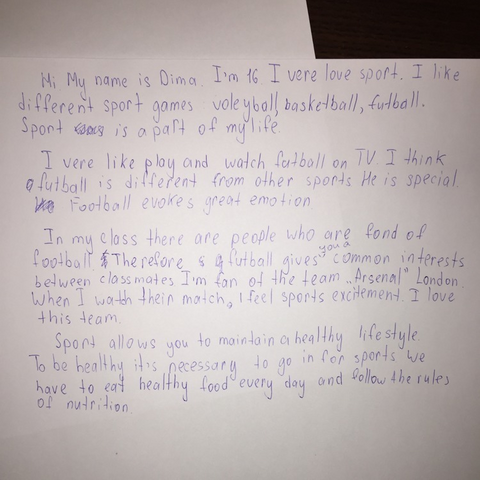 Hi My name is Dima. I'm 16 I vere love sport. I like
different sport games voleyball, basketball, futball.
Sport is a part of my life.
I vere like play and watch futball on TV. I think
futball is different from other sports He is special.
Football evokes great emotion
In my class there are people who are fond of
football. Therefore futball gives you a common interests
between classmates I'm fan of the team „Arsenal" London.
When I watch their match, I feel sports excitement. I love
this team.
Sport allows you to maintain a healthy lifestyle.
To be healthy it's necessary to go in for sports We
have to eat healthy food every day and follow the rules
of nutrition.